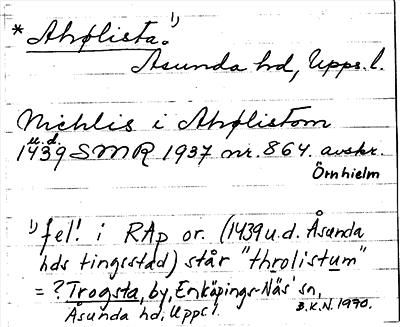 * Ahølista.¹⁾
Åsunda hd, Upps. l.
Michlis i Ahølistom
u.d.
1439 SMR 1937 nr. 864. avskr.
Örnhielm
¹⁾ fel! i RAp or. (1439 u.d. Åsunda
hds tingsstad) står "throlistum"
= ? Trogsta, by, Enköpings-Näs' sn,
Åsunda hd, Upps l. B.K.N. 1990.